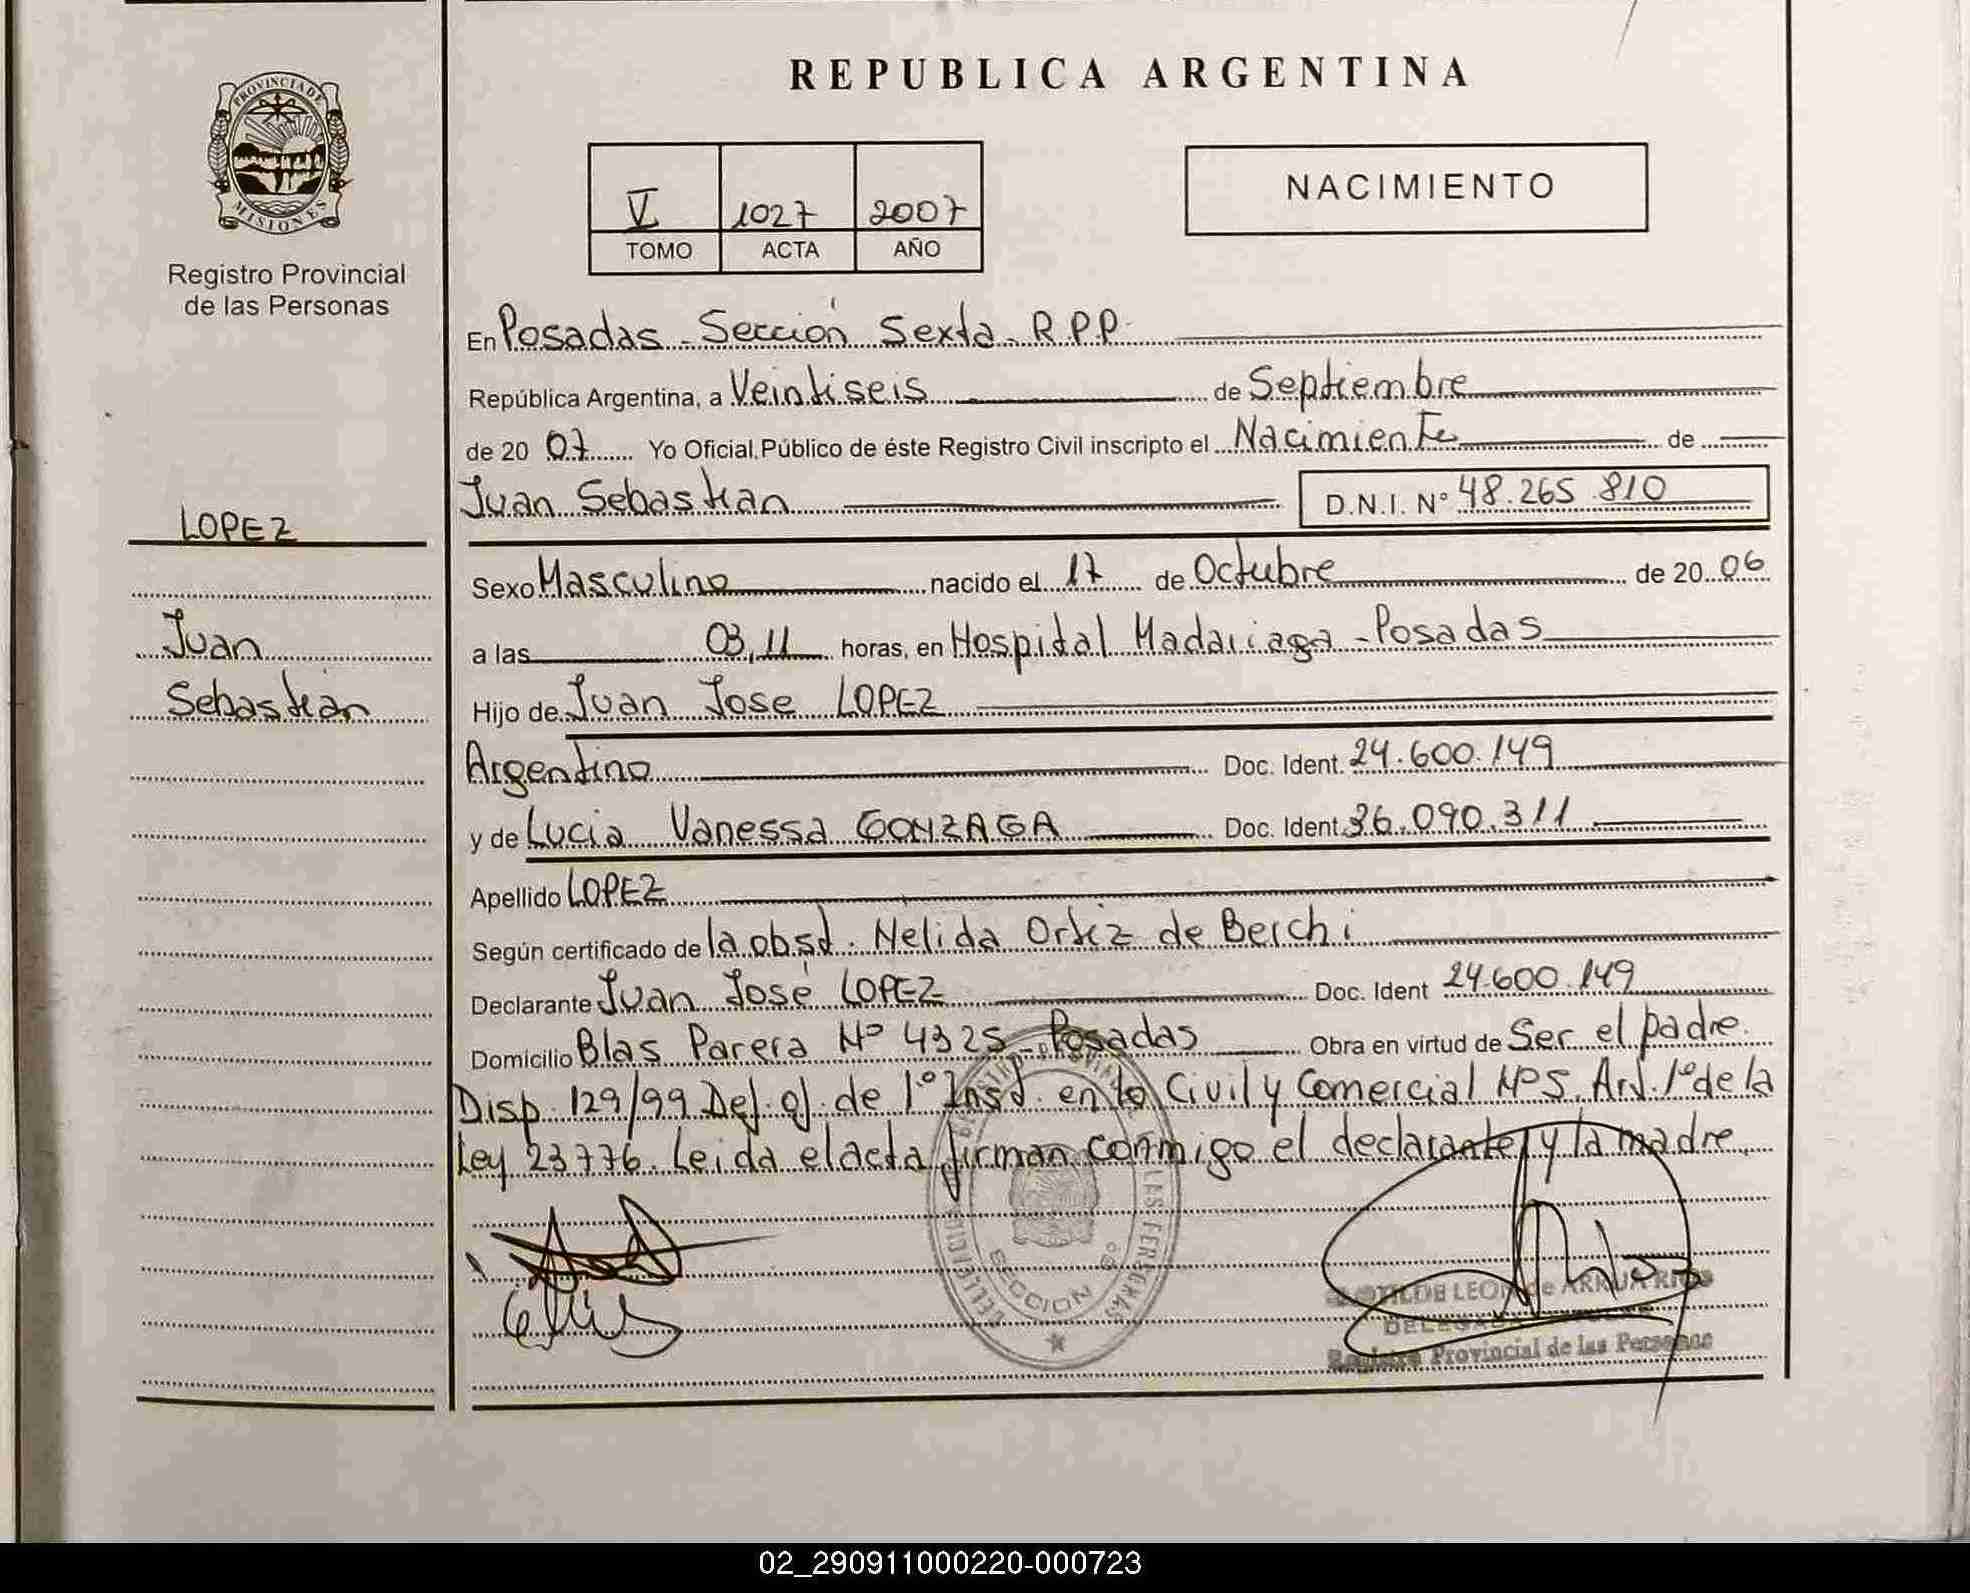 REPUBLICA ARGENTINA
PROVINCIA DE
MISIONES
Registro Provincial
de las Personas
V 1027 2007
TOMO ACTA AÑO
NACIMIENTO
En Posadas - Sección Sexta - R.P.P.
República Argentina, a Veintiseis de Septiembre
de 20 07 Yo Oficial Público de éste Registro Civil inscripto el Nacimiento de
Juan Sebastian D.N.I. N° 48.265.810
LOPEZ
Juan
Sebastián
Sexo Masculino nacido el 17 de Octubre de 20 06
a las 03,11 horas, en Hospital Madariaga - Posadas
Hijo de Juan Jose LOPEZ
Argentino Doc. Ident. 24.600.149
y de Lucia Vanessa GONZAGA Doc. Ident 36.090.311
Apellido LOPEZ
Según certificado de la obst. Nelida Ortiz de Berchi
Declarante Juan José LOPEZ Doc. Ident 24.600.149
Domicilio Blas Parera N° 4325 - Posadas Obra en virtud de Ser el padre.
Disp. 129/99 Def. of. de 1° Inst. en lo Civil y Comercial N° 5. Art. 1° de la
Ley 23776. Leida el acta firman conmigo el declarante y la madre
SECCION 6°
LEON de ARRUA
Registro Provincial de las Personas
02_290911000220-000723